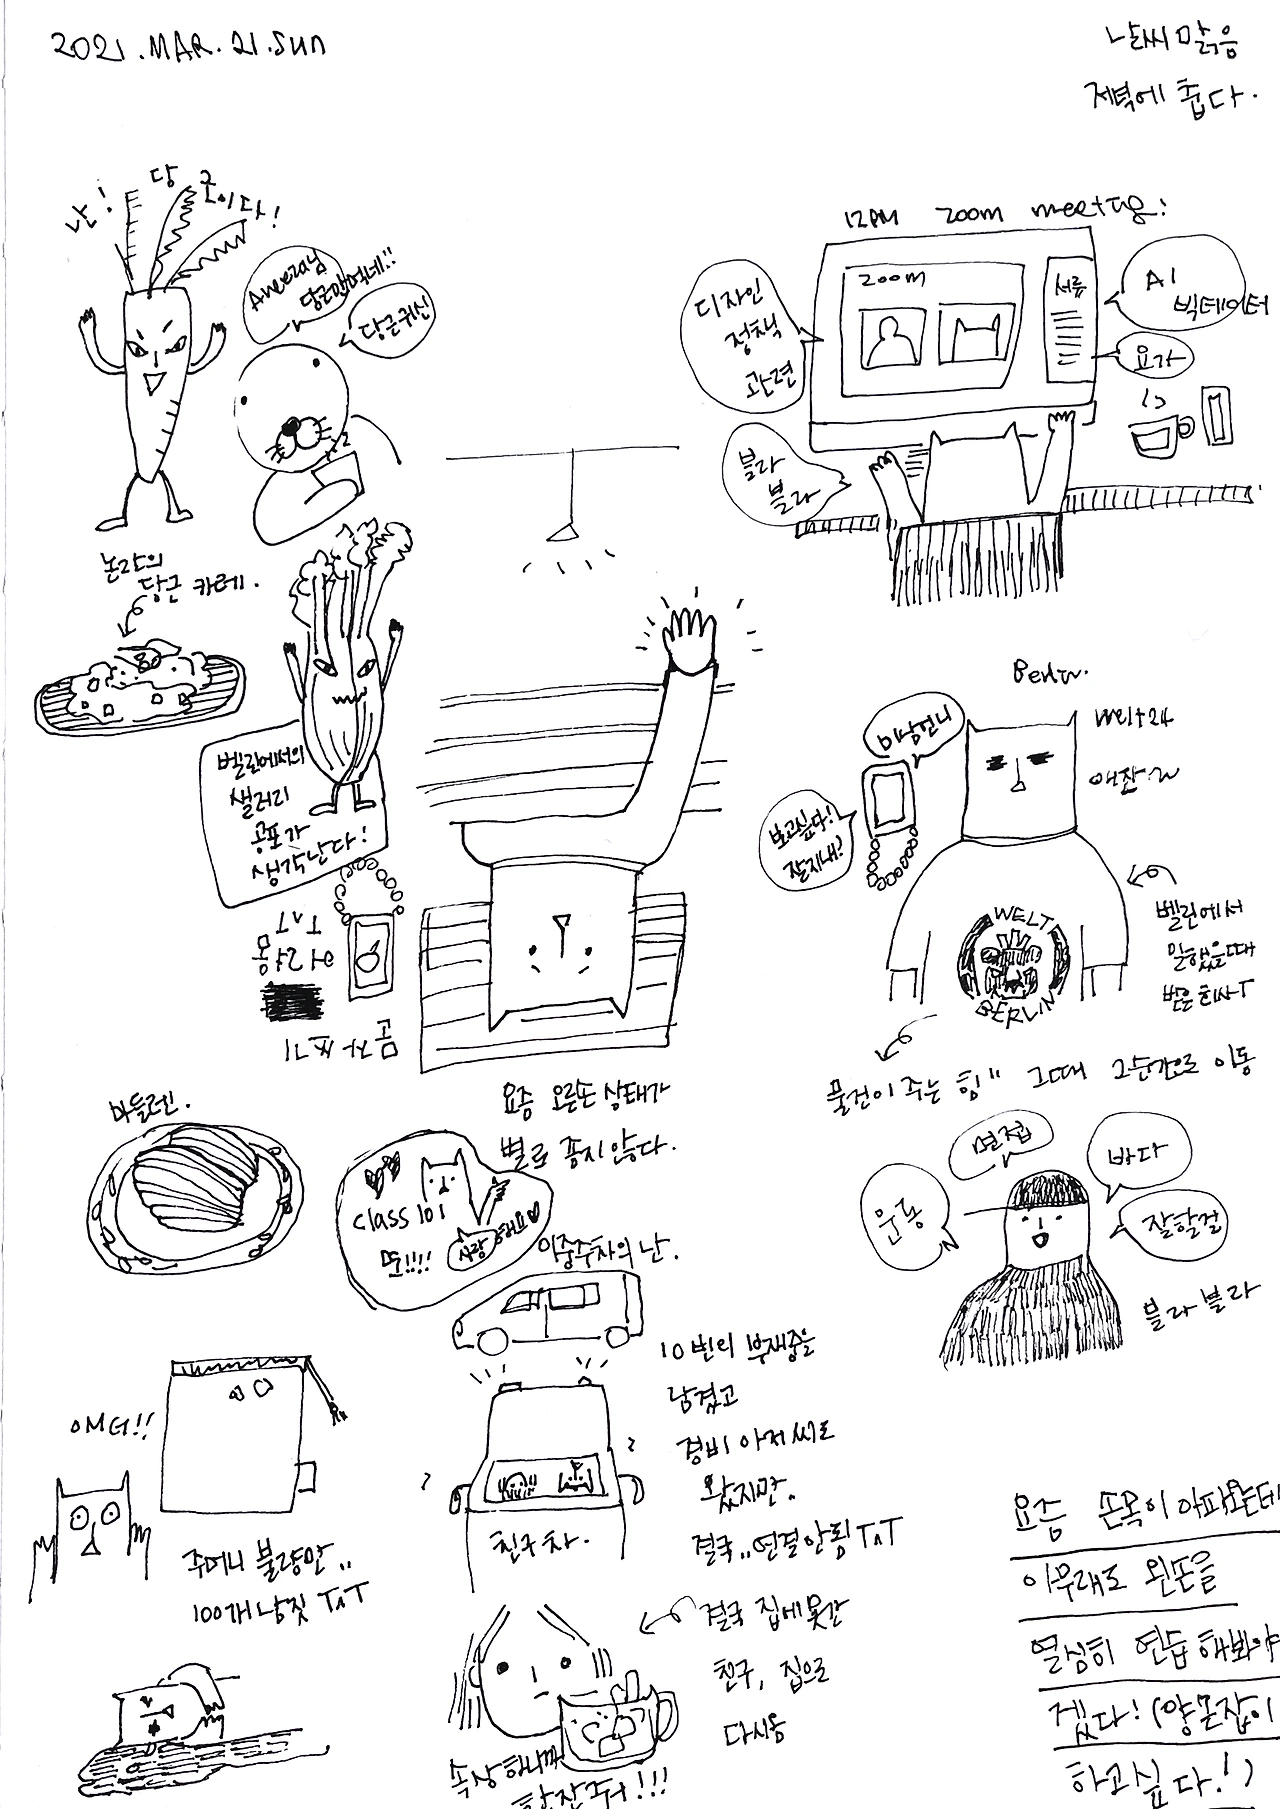 2021.MAR.21.Sun
날씨 맑음
저녁에 춥다.
난! 당근이다!
Aneeza님
당근만 먹네!!
당근귀신
논란의
당근 카레.
벨린에서의
샐러리
공포가
생각난다!
T^T
곰자 쓰기
12PM zoom meeting!
zoom
서류
디자인
정책
관련
AI
빅테이터
요가
블라
블라
Berlin.
Welt24
미남언니
보고싶다!
잘지내?
WELT
BERLIN
벨린에서
일했을때
받은 회사T
물건이 주는 힘" 그때 그순간으로 이동
마들렌.
요즘 오른손 상태가
별로 좋지 않다.
class 101
또!!!!
사랑해요
이중주차의 난.
10번의 부재중을
남겼고
경비 아저씨도
왔지만.
결국..연결안됨 T^T
친구차.
결국 집에 못간
친구, 집으로
다시옴
속상하니까
한잔줘!!!
OMG!!
주머니 불량만..
100개 남짓 T^T
면접
바다
운동
잘할걸
블라 블라
요즘 손목이 아파오는데
아무래도 왼손을
열심히 연습해봐야
겠다! (양손잡이
하고싶다!)